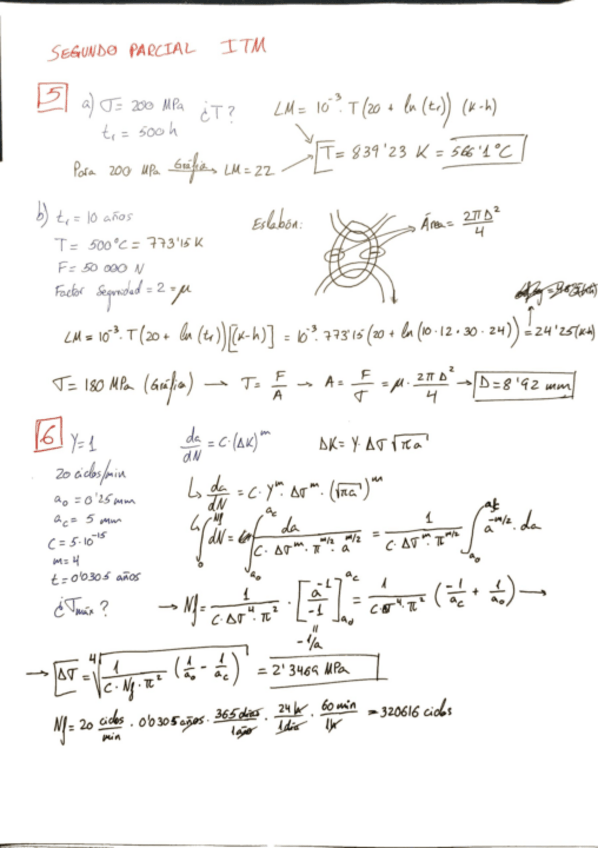 SEGUNDO PARCIAL ITM
5 a) σ = 200 MPa ¿T? LM = 10^-3 · T (20 + ln (tr)) (K·h)
tr = 500 h
Para 200 MPa Gráfica → LM = 22 → T = 839'23 K = 566'1 °C
b) tr = 10 años
T = 500°C = 773'15 K
F = 50 000 N
Factor Seguridad = 2 = μ
Eslabón: Área = 2πD²/4
LM = 10^-3 · T (20 + ln (tr)) [(K·h)] = 10^-3 · 773'15 (20 + ln (10·12·30·24)) = 24'25 (K·h)
σ = 180 MPa (Gráfica) → σ = F/A → A = F/σ = μ · 2πD²/4 → D = 8'92 mm
6 Y = 1 da/dN = C·(ΔK)^m ΔK = Y · Δσ √πa
20 ciclos/min
a₀ = 0'25 mm
ac = 5 mm
C = 5·10^-15
m = 4
t = 0'0305 años
¿σmáx?
↳ da/dN = C · Y^m · Δσ^m · (√πa)^m
↳ ∫₀^Nf dN = ∫a₀^ac da / C · Δσ^m · π^m/2 · a^m/2 = 1 / C · Δσ^m · π^m/2 ∫a₀^ac a^-m/2 · da
→ Nf = 1 / C · Δσ^4 · π² · [a^-1 / -1]a₀^ac = 1 / C · σ^4 · π² (-1/ac + 1/a₀) →
= -1/a
→ Δσ = ⁴√(1 / C · Nf · π² (1/a₀ - 1/ac)) = 2'3469 MPa
Nf = 20 ciclos/min · 0'0305 años · 365 días/1 año · 24 h/1 día · 60 min/1h = 320616 ciclos